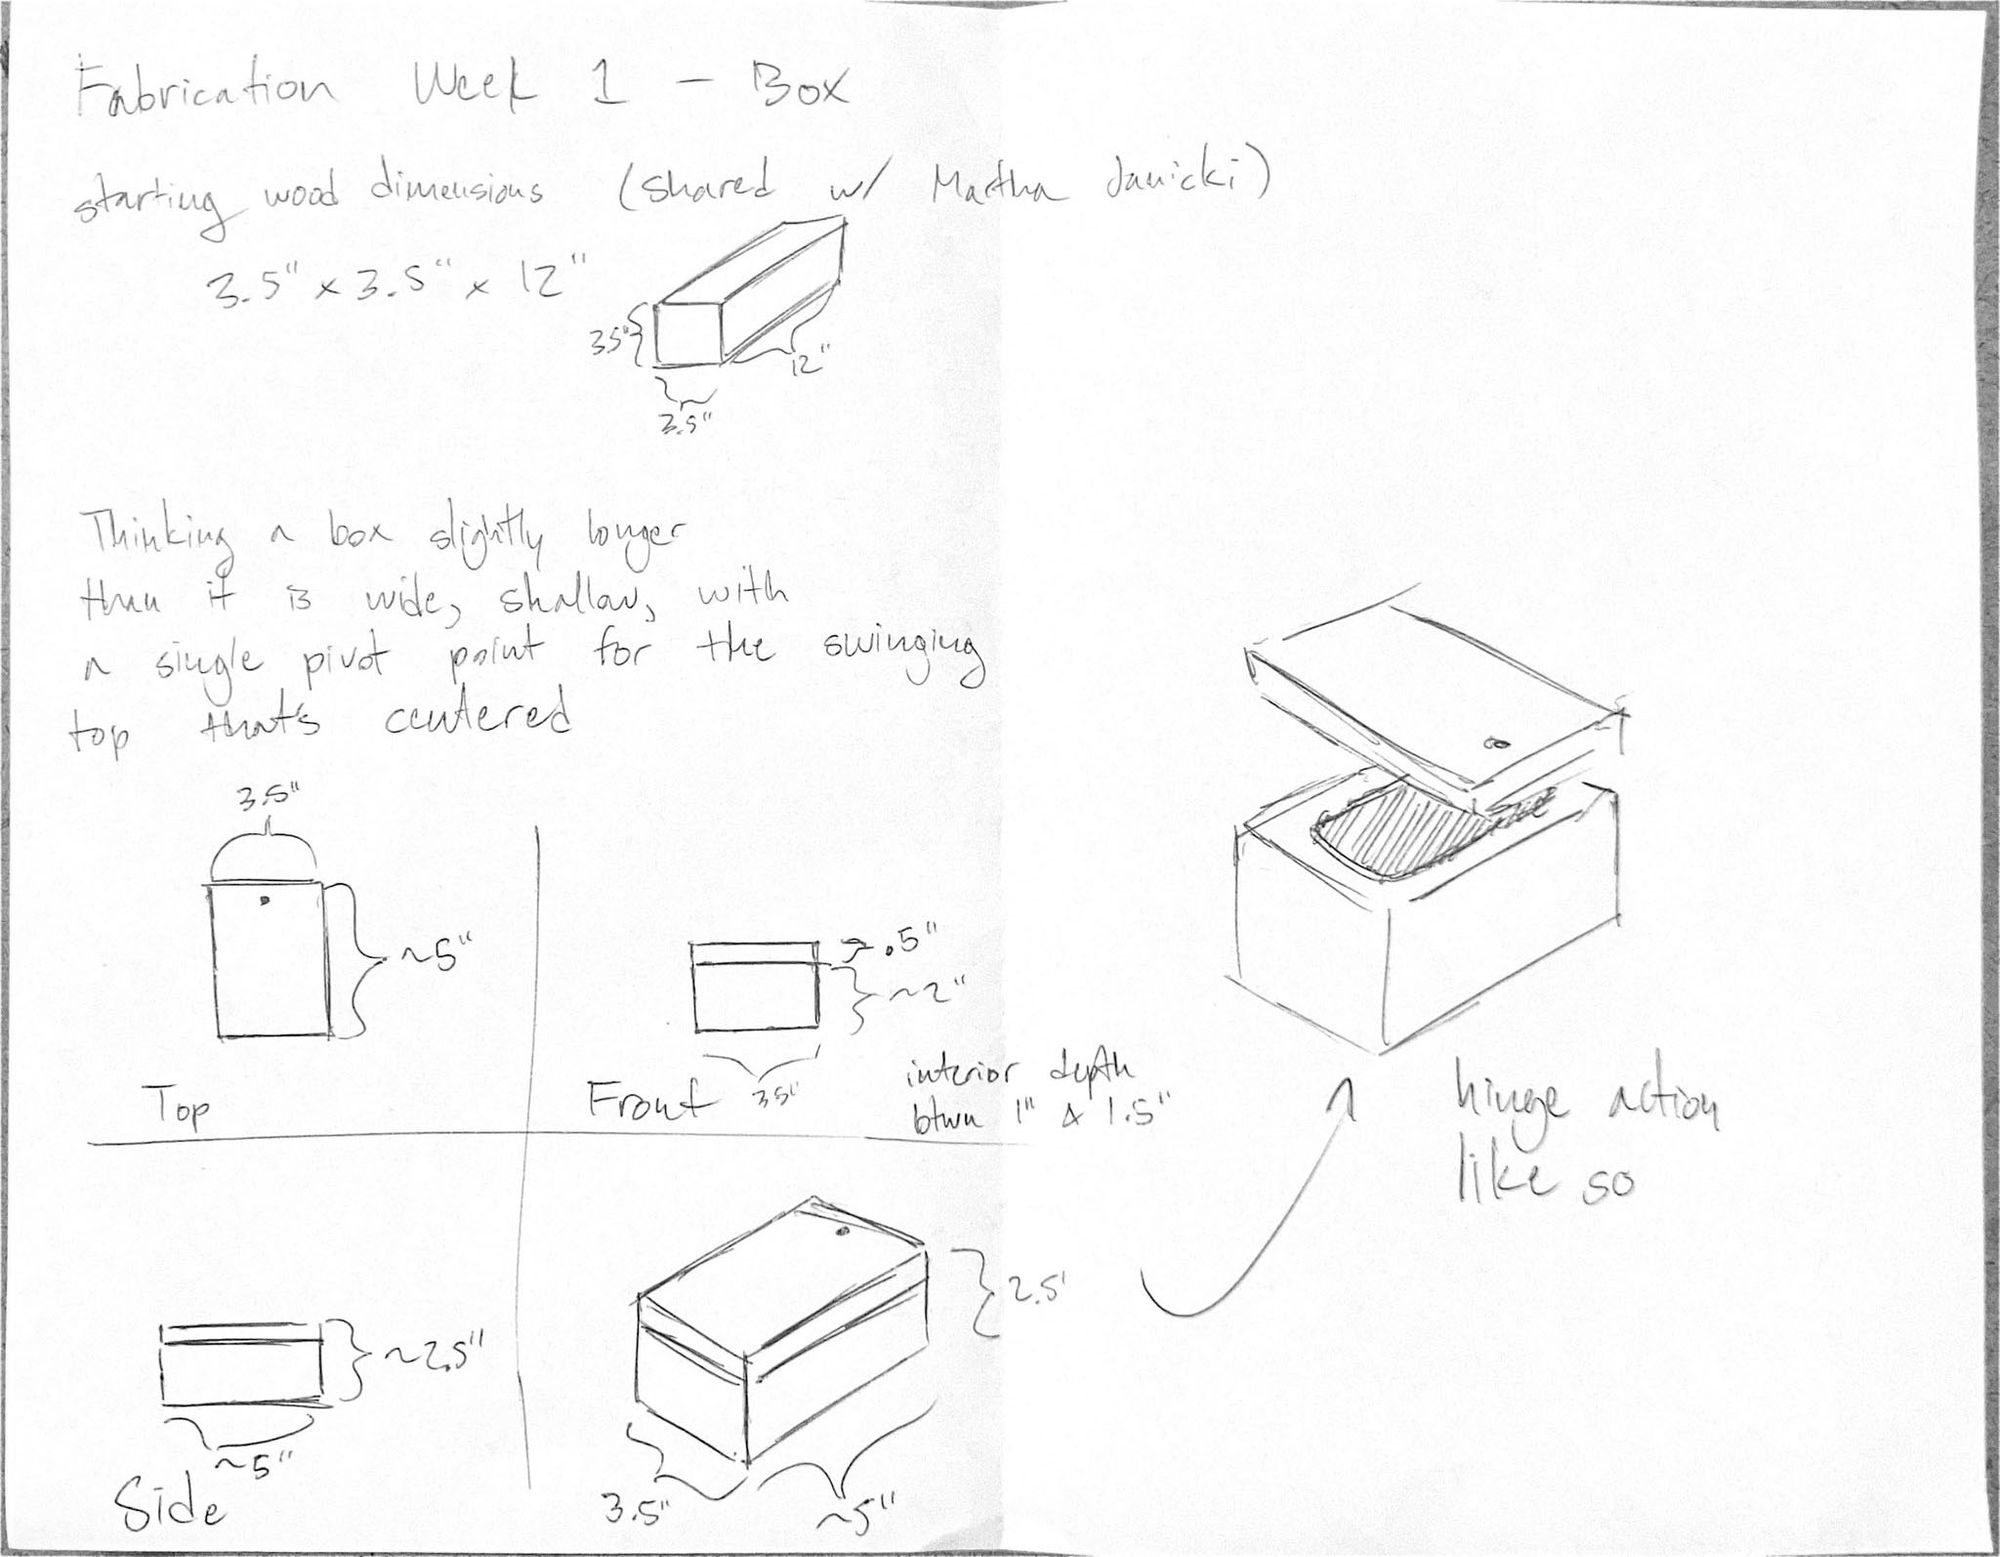 Fabrication Week 1 - Box
starting wood dimensions (shared w/ Martha Janicki)
3.5" x 3.5" x 12"
3.5"
12"
3.5"
Thinking a box slightly longer
than it is wide, shallow, with
a single pivot point for the swinging
top that's centered
3.5"
~5"
Top
.5"
~2"
3.5"
Front
interior depth
btwn 1" & 1.5"
hinge action
like so
~2.5"
~5"
Side
2.5"
3.5"
~5"